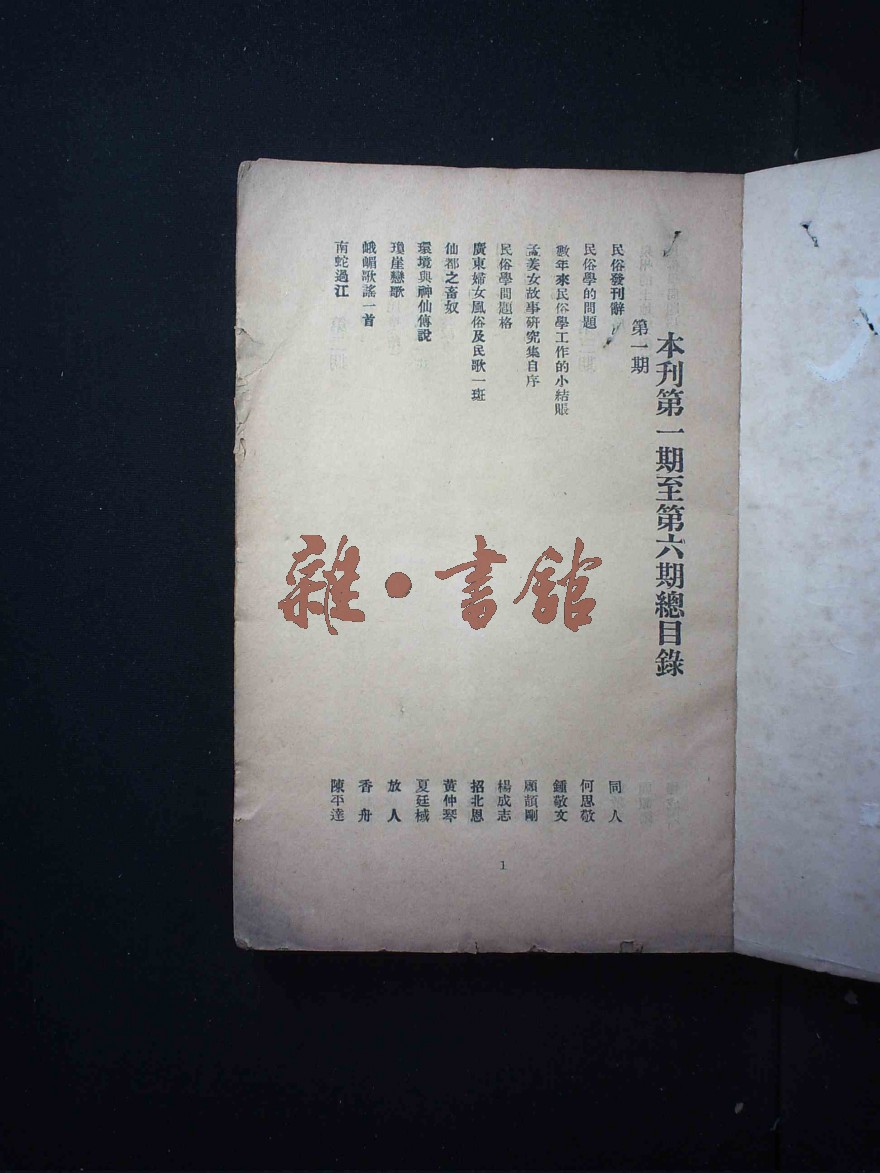 本刊第一期至第六期總目錄
第一期
民俗發刊辭 同人
民俗學的問題 何思敬
數年來民俗學工作的小結賬 鍾敬文
孟姜女故事研究集自序 顧頡剛
民俗學問題格 楊成志
廣東婦女風俗及民歌一斑 招北恩
仙都之畜奴 黃仲琴
環境與神仙傳說 夏廷棫
瓊崖戀歌 放人
峨嵋歌謠一首 香舟
南蛇過江 陳平達
1
雜·書館